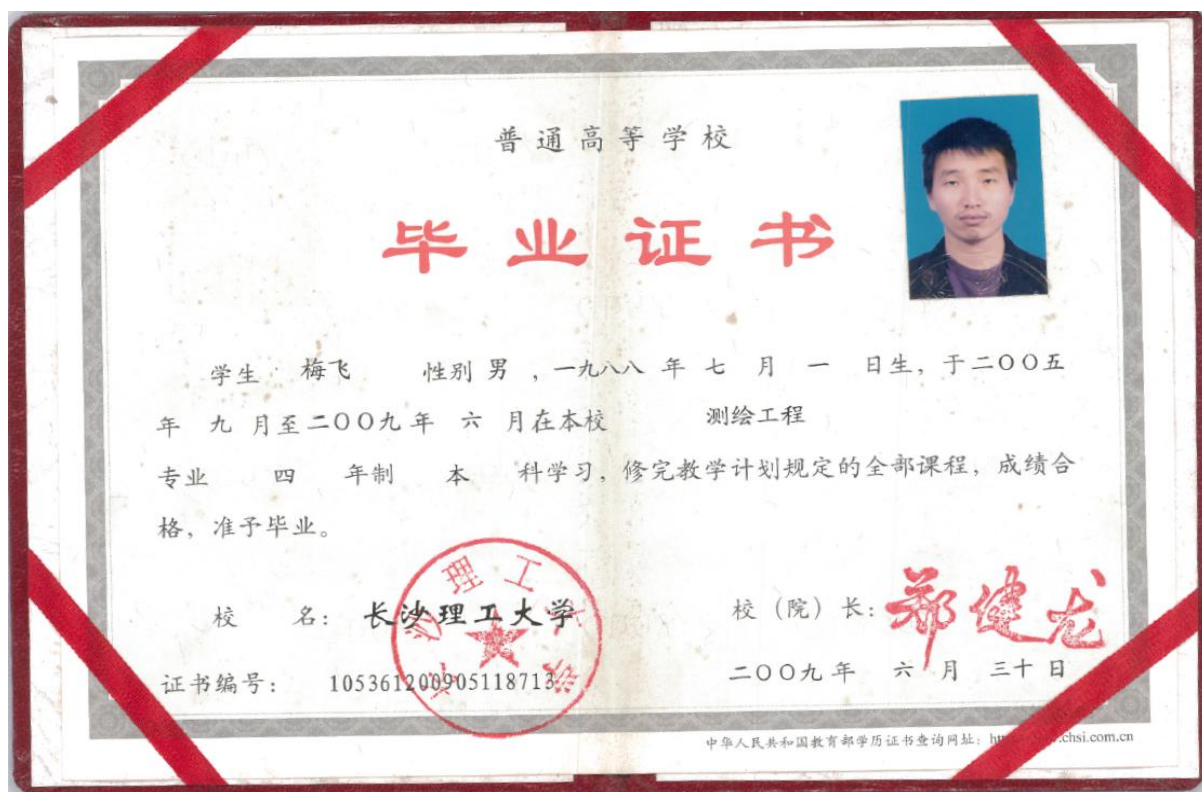 普通高等学校
毕业证书
学生 梅飞 性别 男 ,一九八八 年 七 月 一 日生, 于二〇〇五
年 九 月至二〇〇九年 六 月在本校 测绘工程
专业 四 年制 本 科学习, 修完教学计划规定的全部课程, 成绩合
格, 准予毕业。
校 名: 长沙理工大学
校 (院) 长: 郑健龙
长沙理工大学
证书编号: 105361200905118713
二〇〇九年 六 月 三十 日
中华人民共和国教育部学历证书查询网址: chsi.com.cn